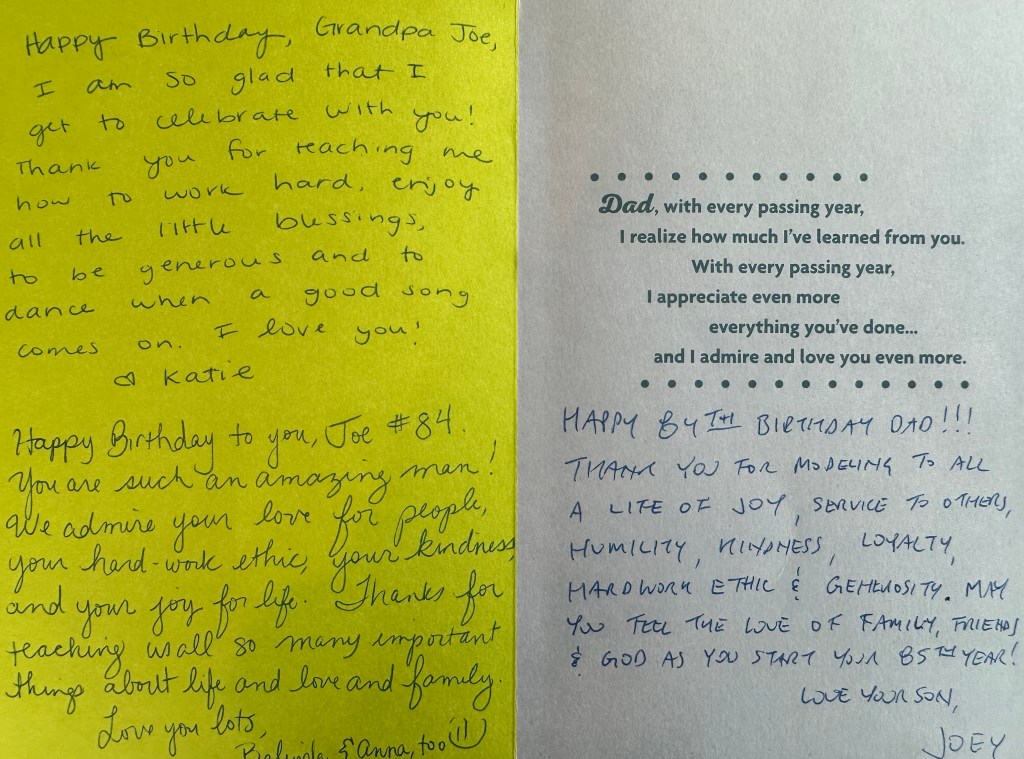 Happy Birthday, Grandpa Joe,
I am so glad that I
get to celebrate with you!
Thank you for teaching me
how to work hard, enjoy
all the little blessings,
to be generous and to
dance when a good song
comes on. I love you!
♡ Katie
Happy Birthday to you, Joe #84.
You are such an amazing man!
We admire your love for people,
your hard-work ethic, your kindness,
and your joy for life. Thanks for
teaching us all so many important
things about life and love and family.
Love you lots,
& Anna, too
Dad, with every passing year,
I realize how much I've learned from you.
With every passing year,
I appreciate even more
everything you've done...
and I admire and love you even more.
HAPPY 84TH BIRTHDAY DAD!!!
THANK YOU FOR MODELING TO ALL
A LIFE OF JOY, SERVICE TO OTHERS,
HUMILITY, KINDNESS, LOYALTY,
HARDWORK ETHIC & GENEROSITY. MAY
YOU FEEL THE LOVE OF FAMILY, FRIENDS
& GOD AS YOU START YOUR 85TH YEAR!
LOVE YOUR SON,
JOEY